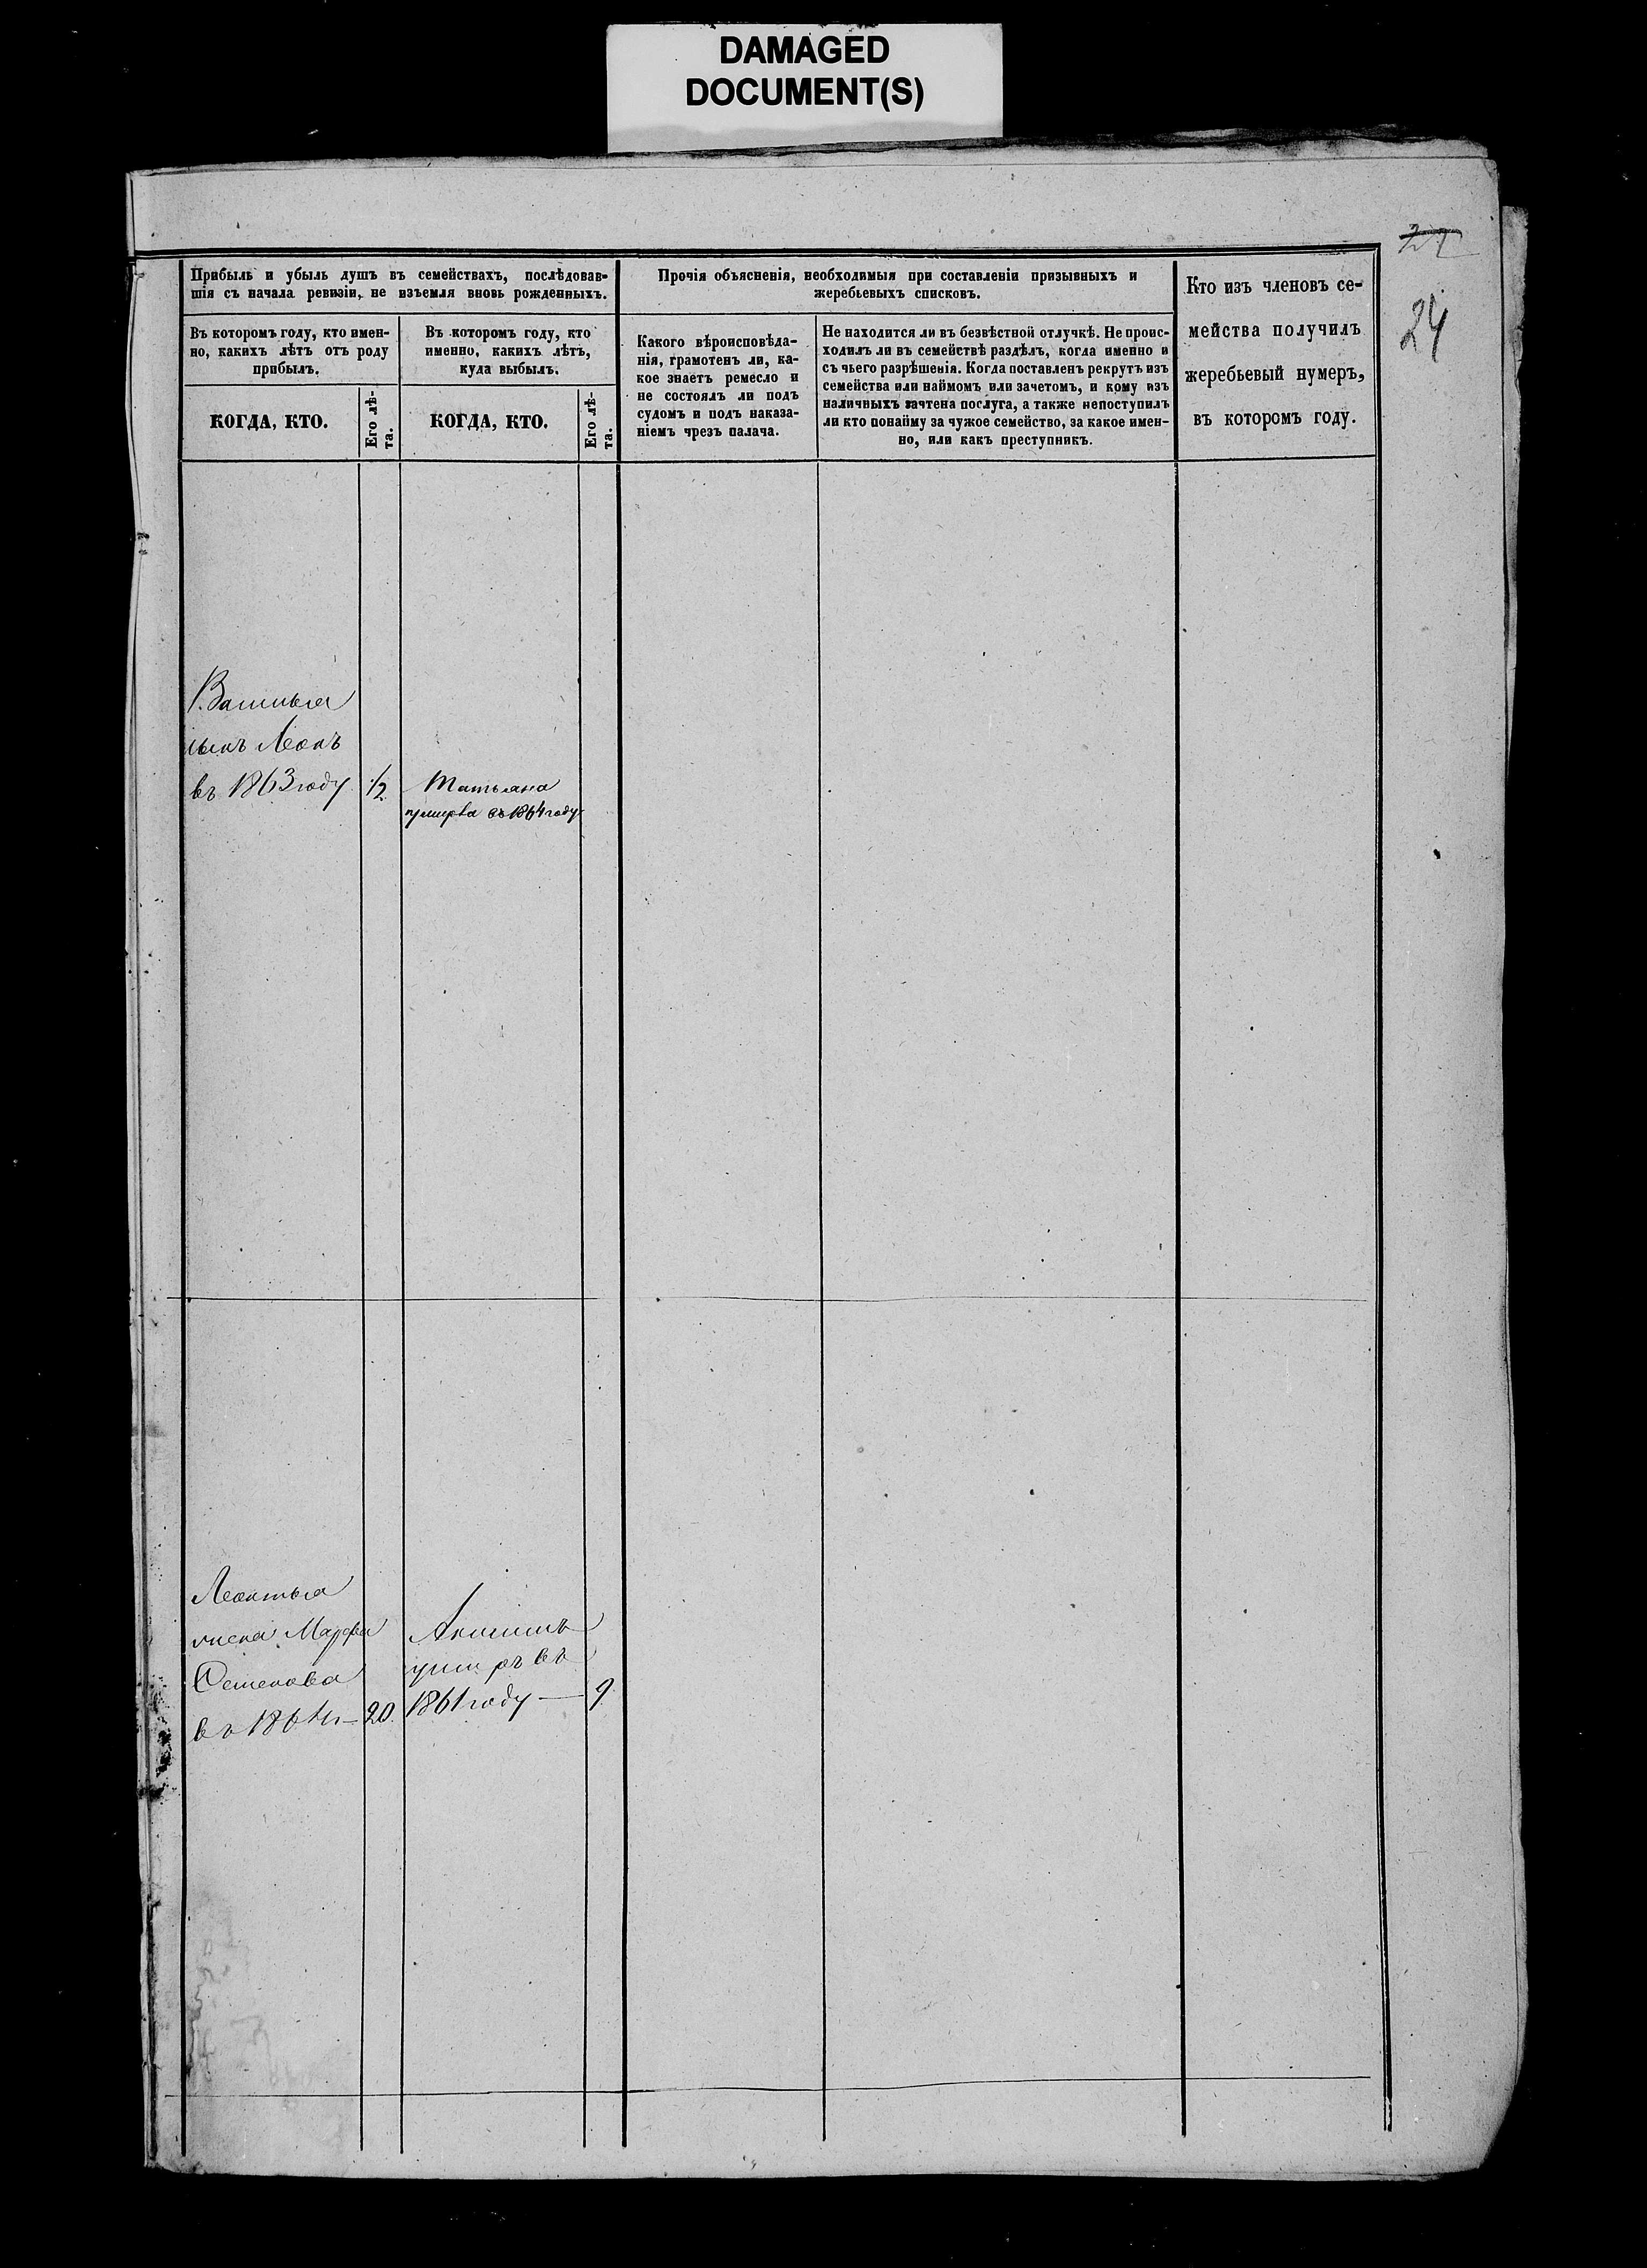 DAMAGED
DOCUMENT(S)
24
Прибыль и убыль душъ въ семействахъ, послѣдовав-
шія съ начала ревизіи, не изъемля вновь рожденныхъ.
Прочія объясненія, необходимыя при составленіи призывныхъ и
жеребьевыхъ списковъ.
Кто изъ членовъ се-
мейства получилъ
жеребьевый нумеръ,
въ которомъ году.
Въ которомъ году, кто имен-
но, какихъ лѣтъ отъ роду
прибылъ.
Въ которомъ году, кто
именно, какихъ лѣтъ,
куда выбылъ.
Какого вѣроисповѣда-
нія, грамотенъ ли, ка-
кое знаетъ ремесло и
не состоялъ ли подъ
судомъ и подъ наказа-
ніемъ чрезъ палача.
Не находится ли въ безвѣстной отлучкѣ. Не проис-
ходилъ ли въ семействѣ раздѣлъ, когда именно и
съ чьего разрѣшенія. Когда поставленъ рекрутъ изъ
семейства или наймомъ или зачетомъ, и кому изъ
наличныхъ зачтена послуга, а также непоступилъ
ли кто понайму за чужое семейство, за какое имен-
но, или какъ преступникъ.
КОГДА, КТО.
Его лѣ-
та.
КОГДА, КТО.
Его лѣ-
та.
Василья
сынъ Леонъ
въ 1863 году 1/2
Татьяна
умерла въ 1864 году
Леонтья
жена Марфа
Семенова
въ 20
Акимъ
умеръ въ
1861 году — 9